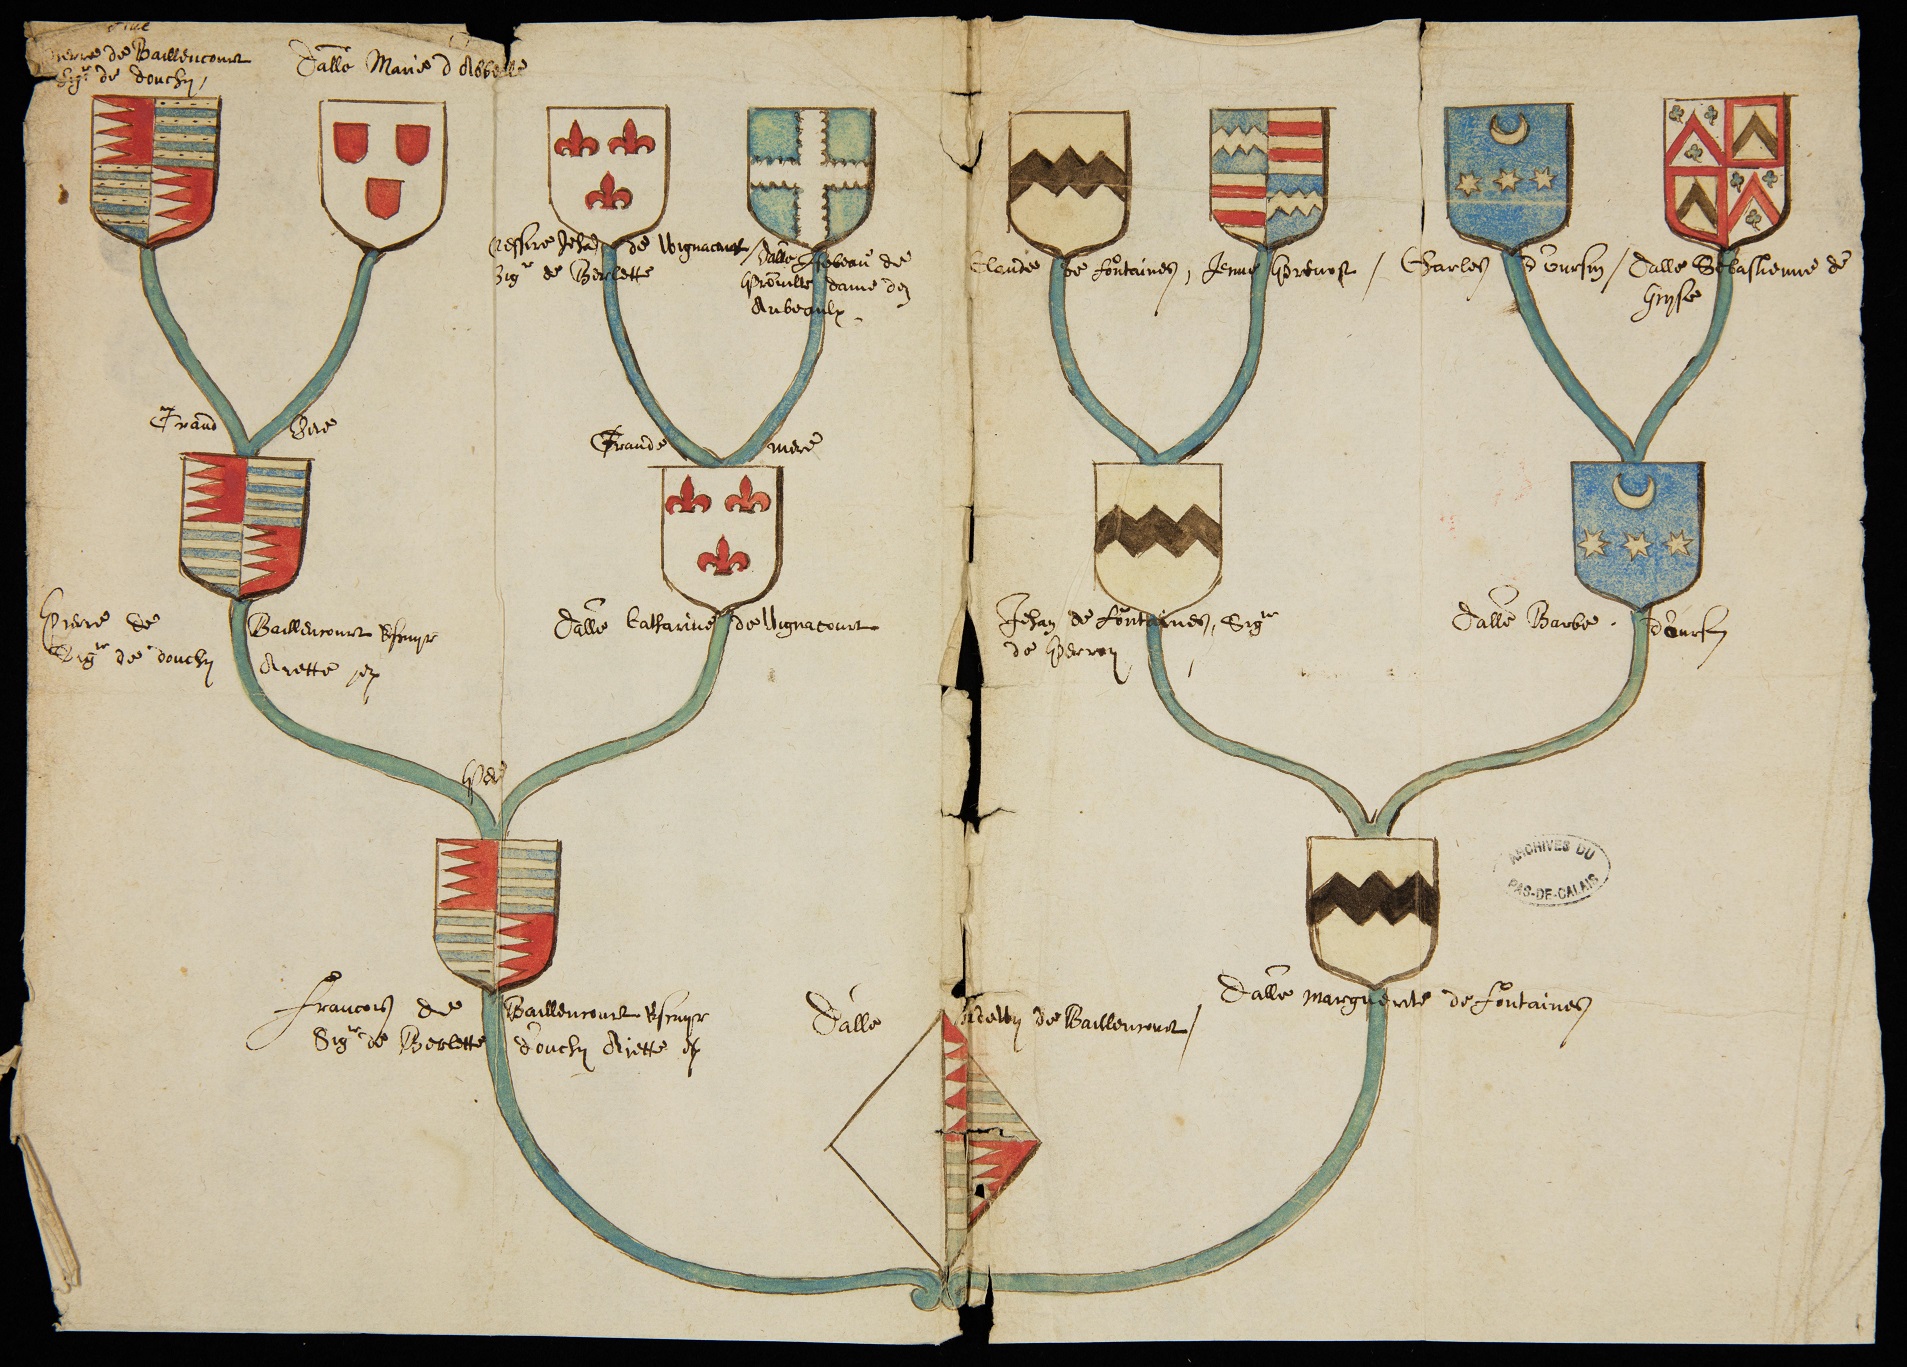 Pierre de Baillencourt
Sigr de douchy /
dalle Marie d Abbelle
Messire Jehan de Wignacourt /
Sigr de Berlette
dalle Isebeau de
Prouville dame des
Aubeaulx
Claude de fontaines, Jenne Prevost /
Charles d'oursin / dalle Sebastienne de
Gryse
Grand Pere
Grande mere
Pierre de Baillencourt Escuyer
Sigr de douchy Aiette
dalle Catharine de Wignacourt
Jehan de fontaines, Sigr
de
dalle Barbe d'oursin
Pere
Francois de Baillencourt Escuyer
Sigr de Berlette douchy Aiette
dalle de Baillencourt /
dalle marguerite de fontaines
ARCHIVES DU
PAS-DE-CALAIS